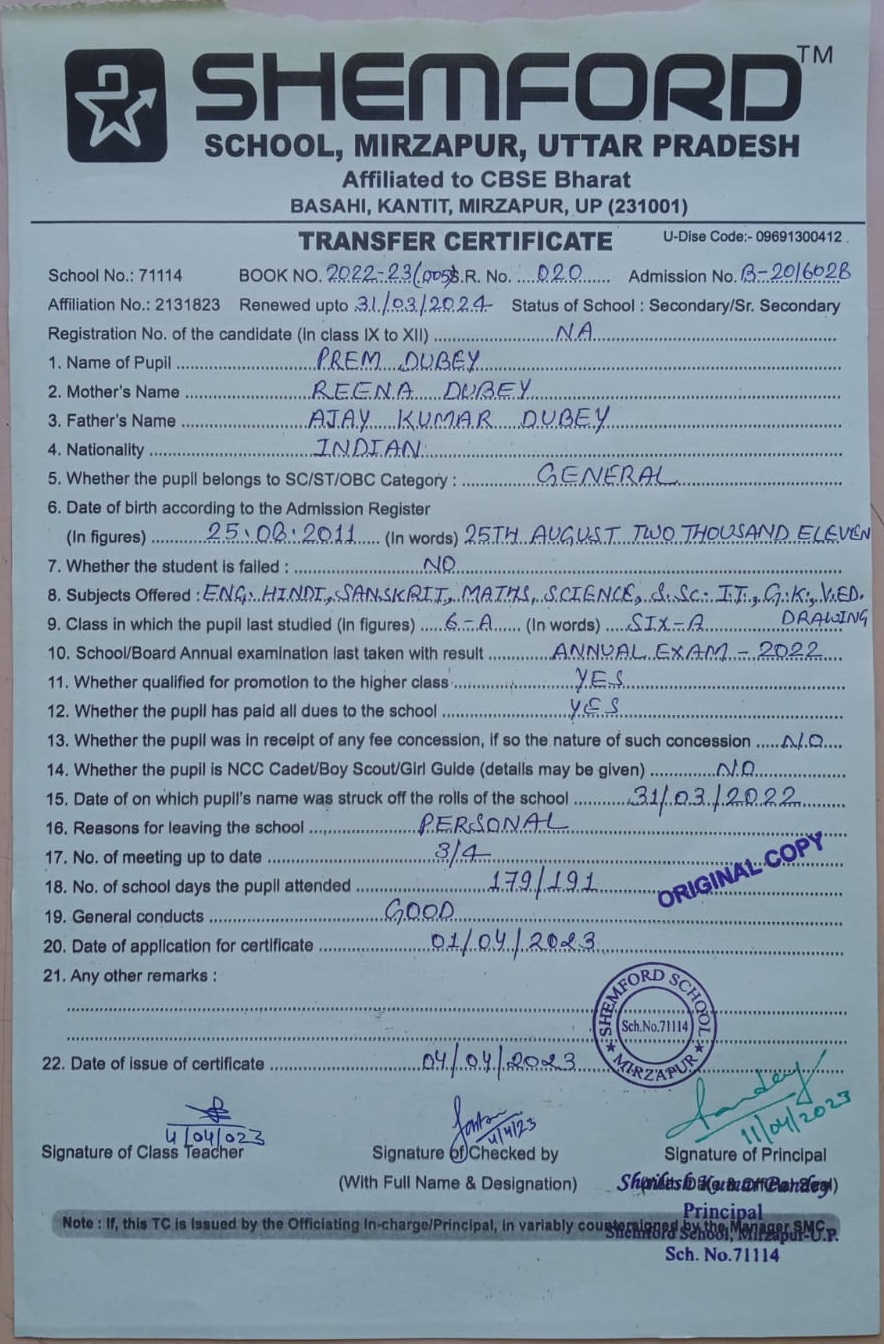 SHEMFORD™
SCHOOL, MIRZAPUR, UTTAR PRADESH
Affiliated to CBSE Bharat
BASAHI, KANTIT, MIRZAPUR, UP (231001)
TRANSFER CERTIFICATE U-Dise Code:- 09691300412
School No.: 71114 BOOK NO. 2022-23(005) S.R. No. 020 Admission No. B-201602B
Affiliation No.: 2131823 Renewed upto 31/03/2024 Status of School : Secondary/Sr. Secondary
Registration No. of the candidate (in class IX to XII) NA
1. Name of Pupil PREM DUBEY
2. Mother's Name REENA DUBEY
3. Father's Name AJAY KUMAR DUBEY
4. Nationality INDIAN
5. Whether the pupil belongs to SC/ST/OBC Category : GENERAL
6. Date of birth according to the Admission Register
(In figures) 25.08.2011 (In words) 25TH AUGUST TWO THOUSAND ELEVEN
7. Whether the student is failed : NO
8. Subjects Offered : ENG. HINDI, SANSKRIT, MATHS, SCIENCE, S.SC. I.T., G.K., V.ED.
DRAWING
9. Class in which the pupil last studied (in figures) 6-A (In words) SIX-A
10. School/Board Annual examination last taken with result ANNUAL EXAM - 2022
11. Whether qualified for promotion to the higher class YES
12. Whether the pupil has paid all dues to the school YES
13. Whether the pupil was in receipt of any fee concession, if so the nature of such concession NO
14. Whether the pupil is NCC Cadet/Boy Scout/Girl Guide (details may be given) NO
15. Date of on which pupil's name was struck off the rolls of the school 31/03/2022
16. Reasons for leaving the school PERSONAL
17. No. of meeting up to date 3/4
18. No. of school days the pupil attended 179/191
ORIGINAL COPY
19. General conducts GOOD
20. Date of application for certificate 01/04/2023
21. Any other remarks :
SHEMFORD SCHOOL
Sch.No.71114
★ MIRZAPUR ★
22. Date of issue of certificate 04/04/2023
4/04/023 4/4/23 11/04/2023
Signature of Class Teacher Signature of Checked by Signature of Principal
(With Full Name & Designation)
Kumar Pandey
Principal
Note : If, this TC is issued by the Officiating In-charge/Principal, in variably countersigned by the Manager SMC
Shemford School, Mirzapur-U.P.
Sch. No.71114